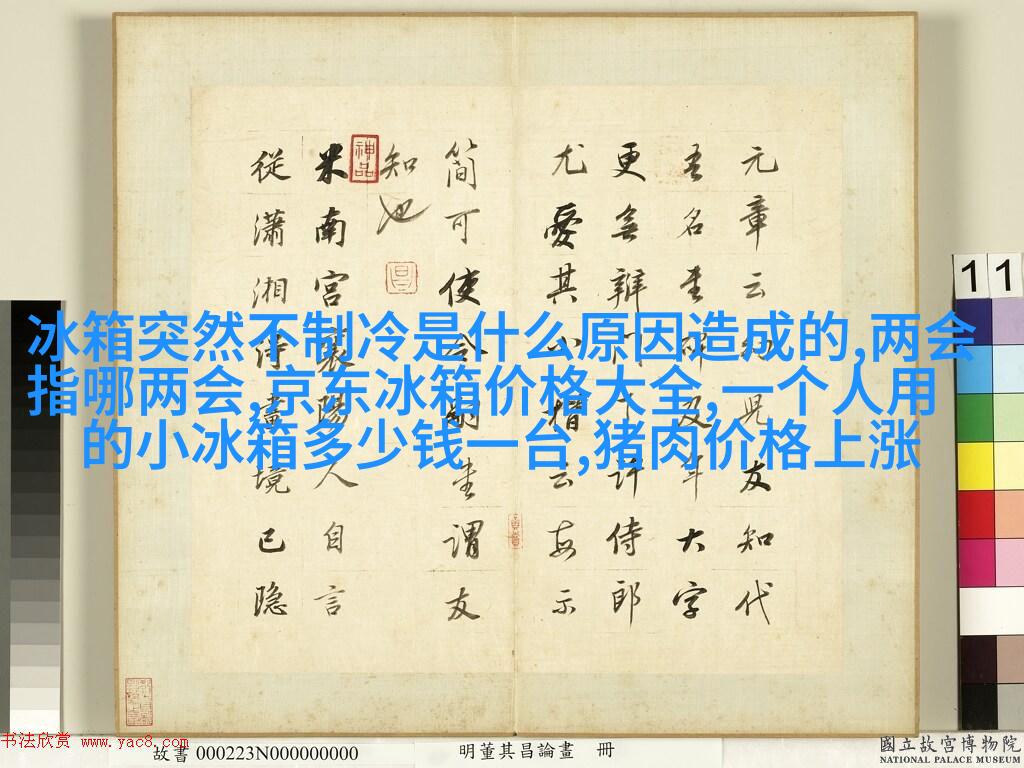 元章云幼兒友知代
吾名書碑及手大字
更無辨門下許侍郎
尤愛其小楷云每示
簡可使令嗣書謂友
知也
神品
米南宮襄陽人自言
從瀟湘得畫境已隱
冰箱突然不制冷是什么原因造成的,两会
指哪两会,京东冰箱价格大全,一个人用
的小冰箱多少钱一台,猪肉价格上涨
11
书法欣赏 www.yac8.com
故書 000223N000000000
明董其昌論畫 冊
國立故宮博物院
NATIONAL PALACE MUSEUM